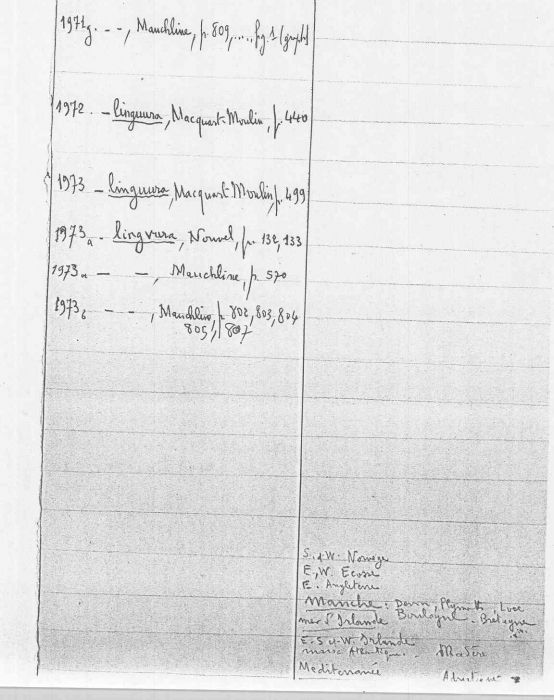 1971g. - - , Mauchline, p. 809, ...., fig. 1 (graph)
1972. - linguura, Macquart-Moulin, p. 440
1973 - linguura, Macquart-Moulin, p. 499
1973a - lingvura, Nouvel, p. 132, 133
1973a - - , Mauchline, p. 570
1973b - - - , Mauchline, p. 802, 803, 804
805, 807
S. & W. Norvège
E., W. Ecosse
E. Angleterre
Manche: Devon, Plymouth,
mer d'Irlande Boulogne - Bretagne
E. S. & W. Irlande
maroc Atlantique. Madère
Méditerranée Adriatique